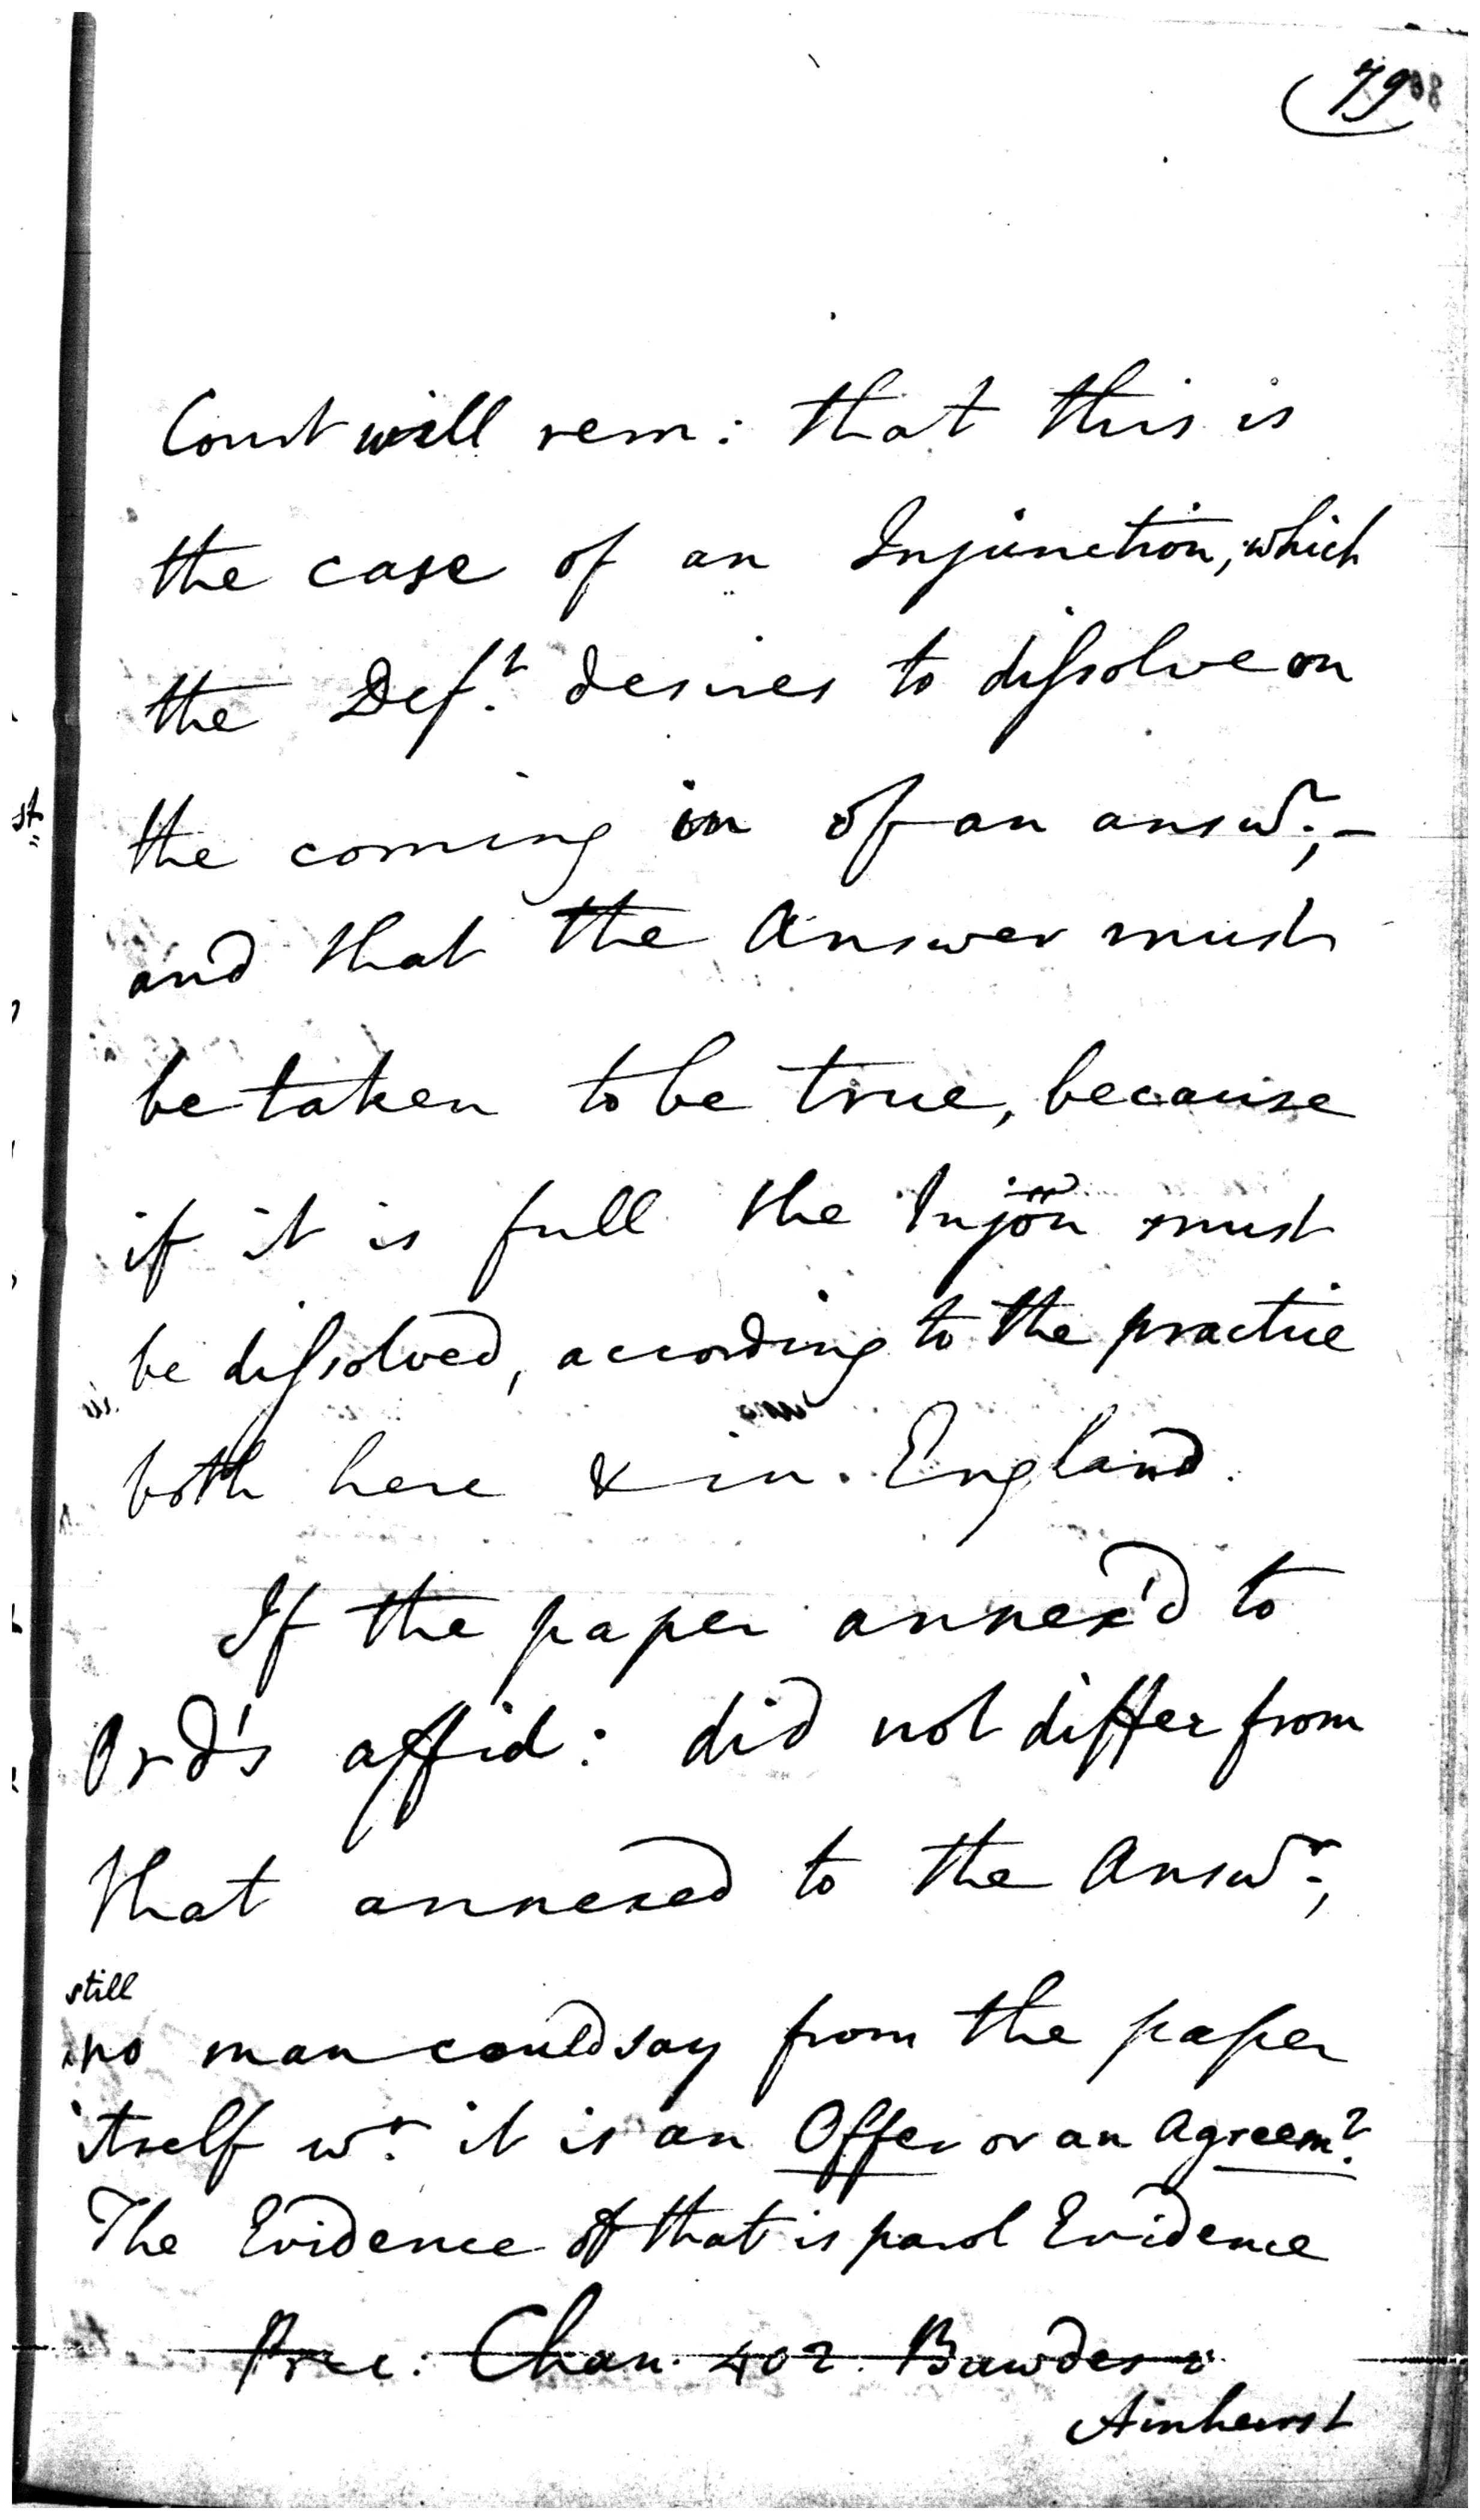 79
Court will rem: that this is
the case of an Injunction, which
the Def.t desires to dissolve on
the coming in of an answ.r; –
and that the Answer must
be taken to be true, because
if it is full the Injõn must
be dissolved, according to the practice
both here & in England.
If the paper annex'd to
Ord's affid: did not differ from
that annexed to the Answ.r;
still
no man could say from the paper
itself w.r it is an Offer or an Agreem.t
The Evidence of that is parol Evidence
Prec: Chan. 402. Bawdes v
Amherst